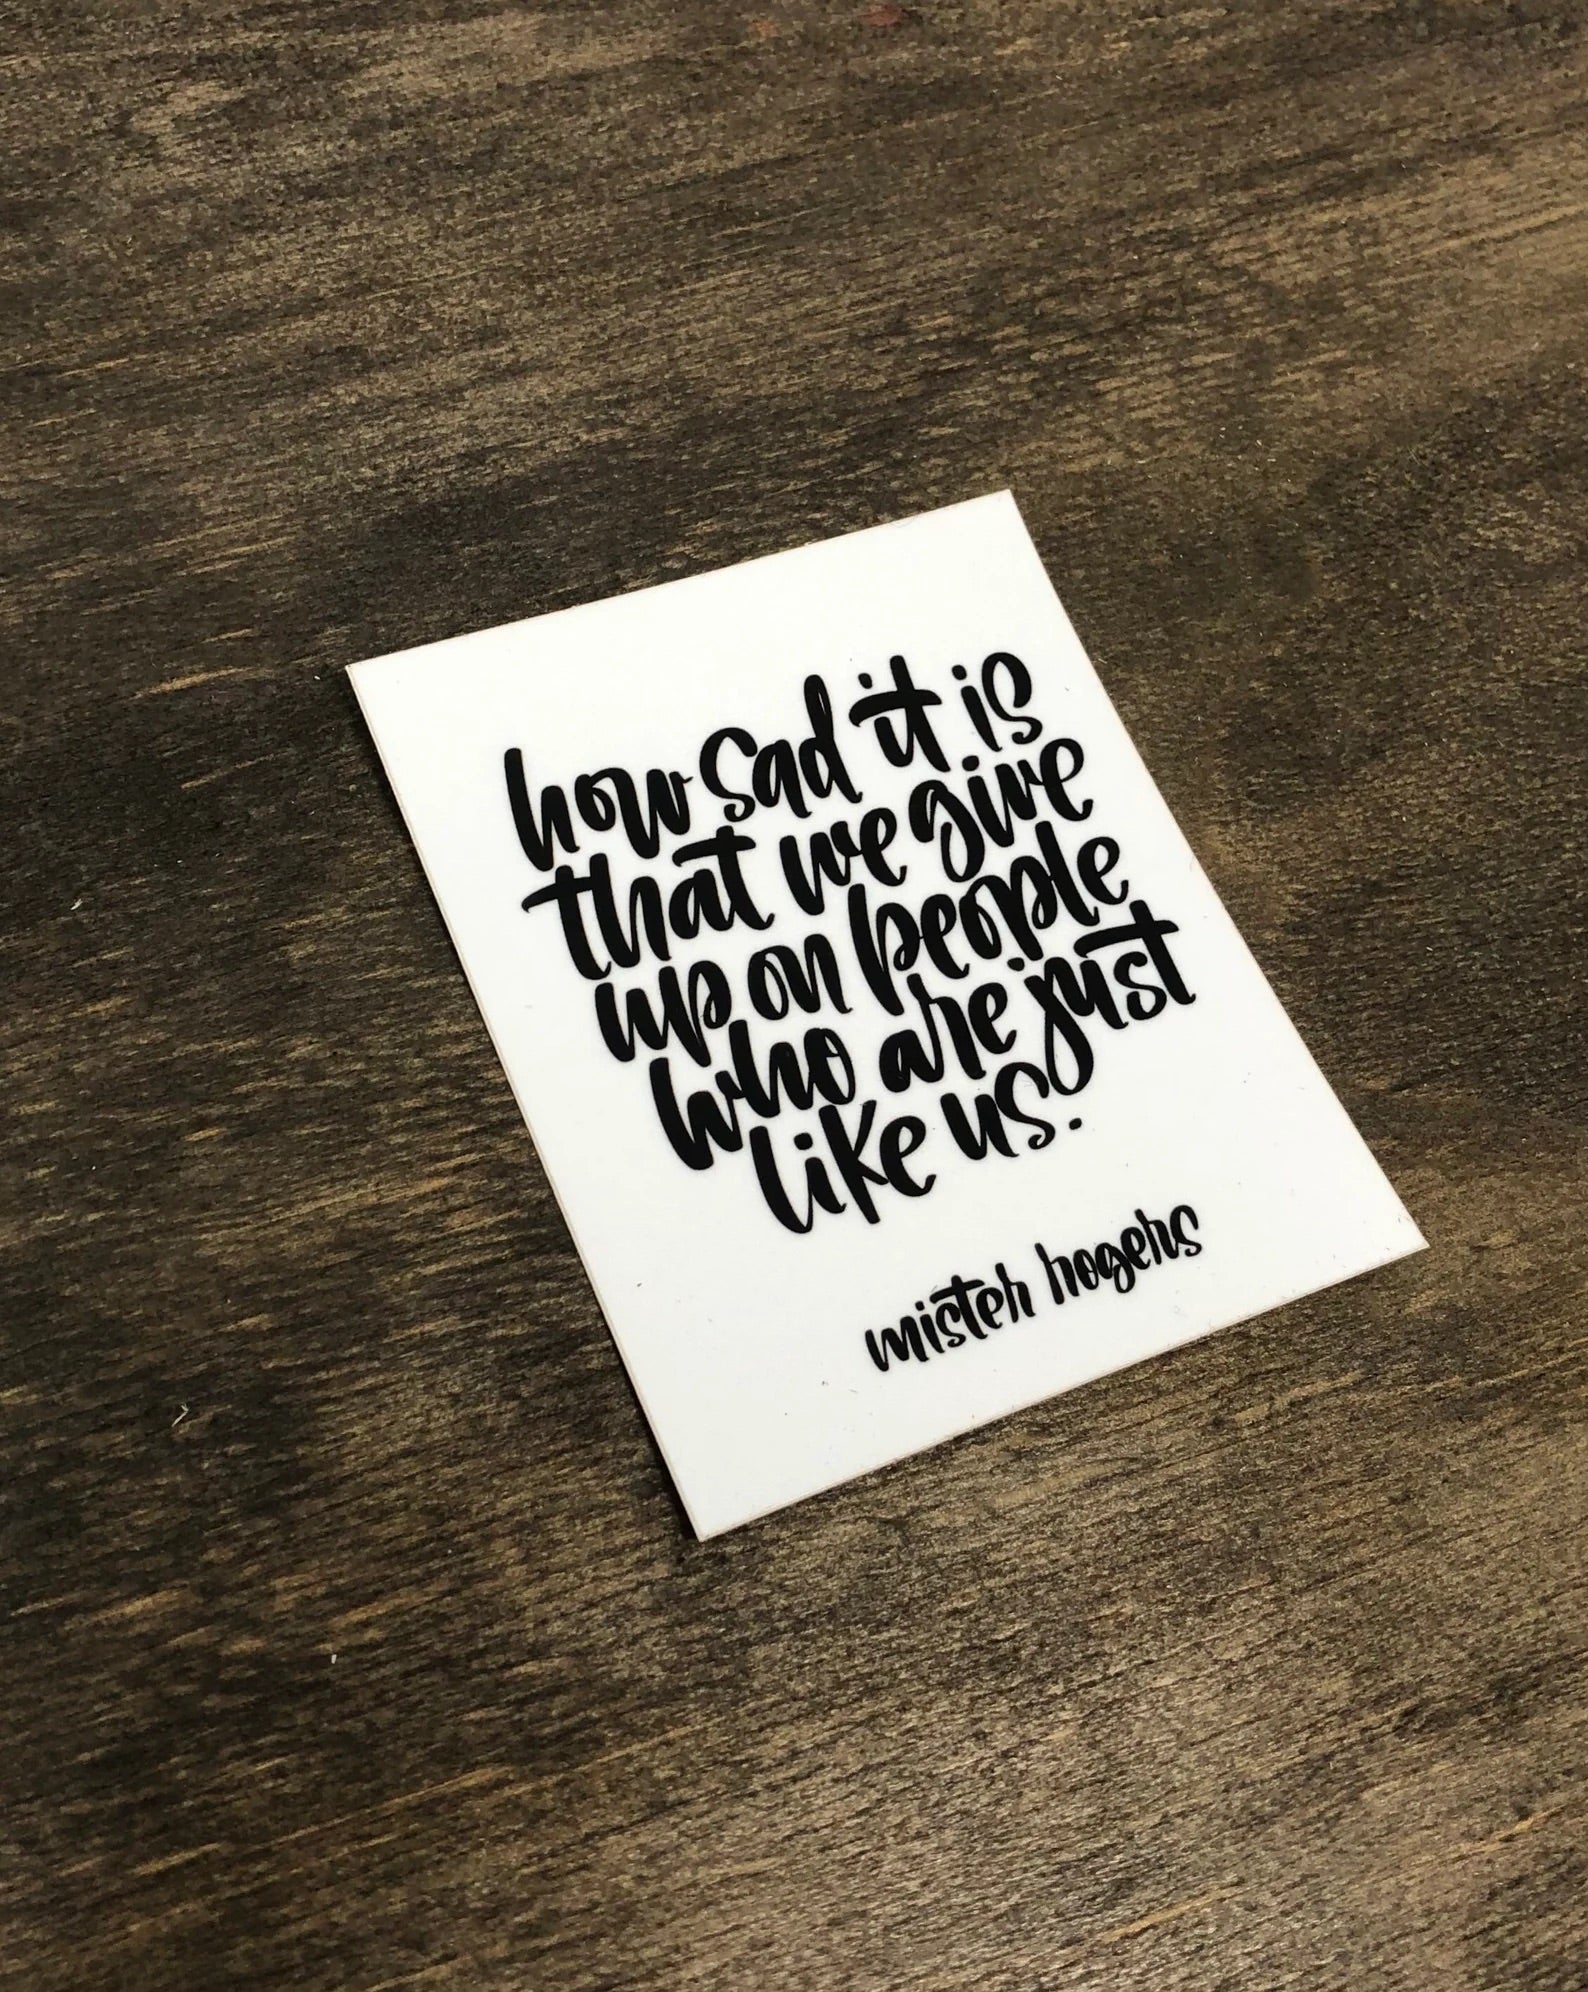 how sad it is
that we give
up on people
who are just
like us.
mister rogers